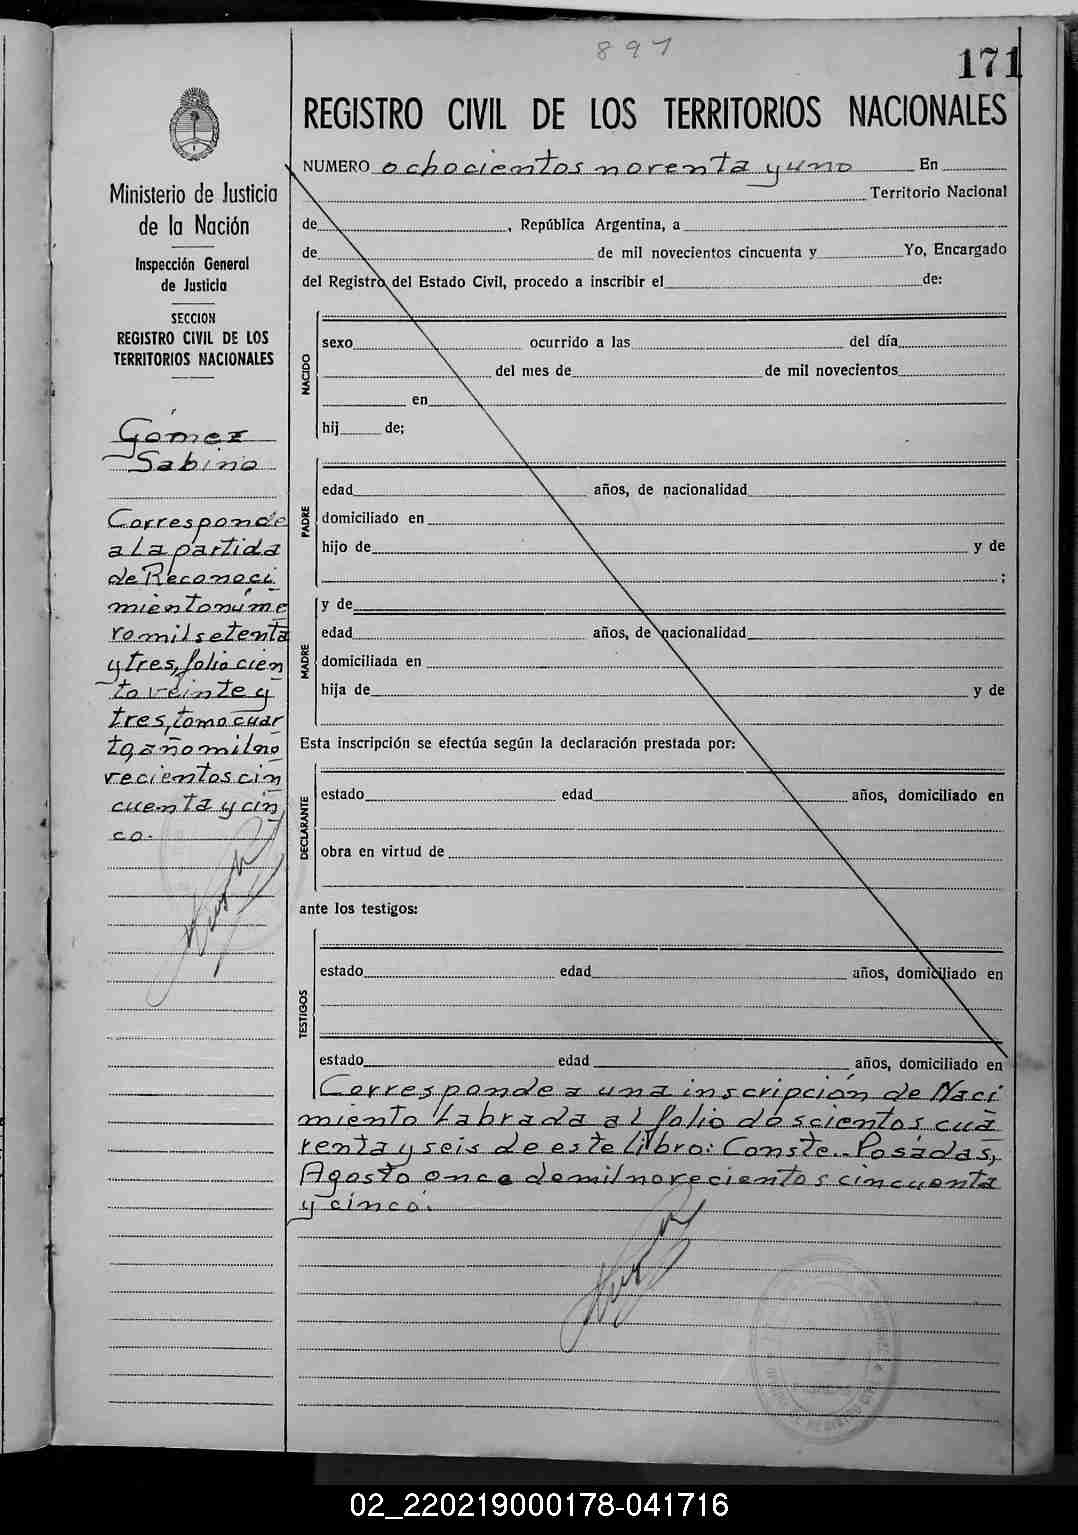 891
171
REGISTRO CIVIL DE LOS TERRITORIOS NACIONALES
NUMERO ochocientos noventa y uno En
Territorio Nacional
de , República Argentina, a
de de mil novecientos cincuenta y Yo, Encargado
del Registro del Estado Civil, procedo a inscribir el de:
NACIDO
sexo ocurrido a las del día
del mes de de mil novecientos
en
hij de;
PADRE
edad años, de nacionalidad
domiciliado en
hijo de y de
;
MADRE
y de
edad años, de nacionalidad
domiciliada en
hija de y de
Esta inscripción se efectúa según la declaración prestada por:
DECLARANTE
estado edad años, domiciliado en
obra en virtud de
ante los testigos:
TESTIGOS
estado edad años, domiciliado en
estado edad años, domiciliado en
Corresponde a una inscripción de Naci
miento labrada al folio doscientos cua
renta y seis de este libro: Conste.. Posadas,
Agosto once de mil novecientos cincuenta
y cinco.
Ministerio de Justicia
de la Nación
Inspección General
de Justicia
SECCION
REGISTRO CIVIL DE LOS
TERRITORIOS NACIONALES
Gómez
Sabino
Corresponde
a la partida
de Reconoci
miento núme
ro mil setenta
y tres, folio cien
to veinte y
tres, tomo cuar
to, año mil no
vecientos cin
cuenta y cin
co.
02_220219000178-041716